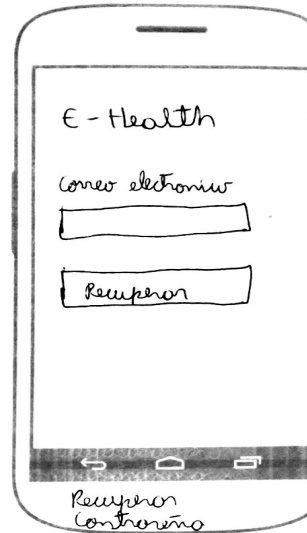 E-Health
Correo electronico
Recuperar
Recuperar
Contraseña